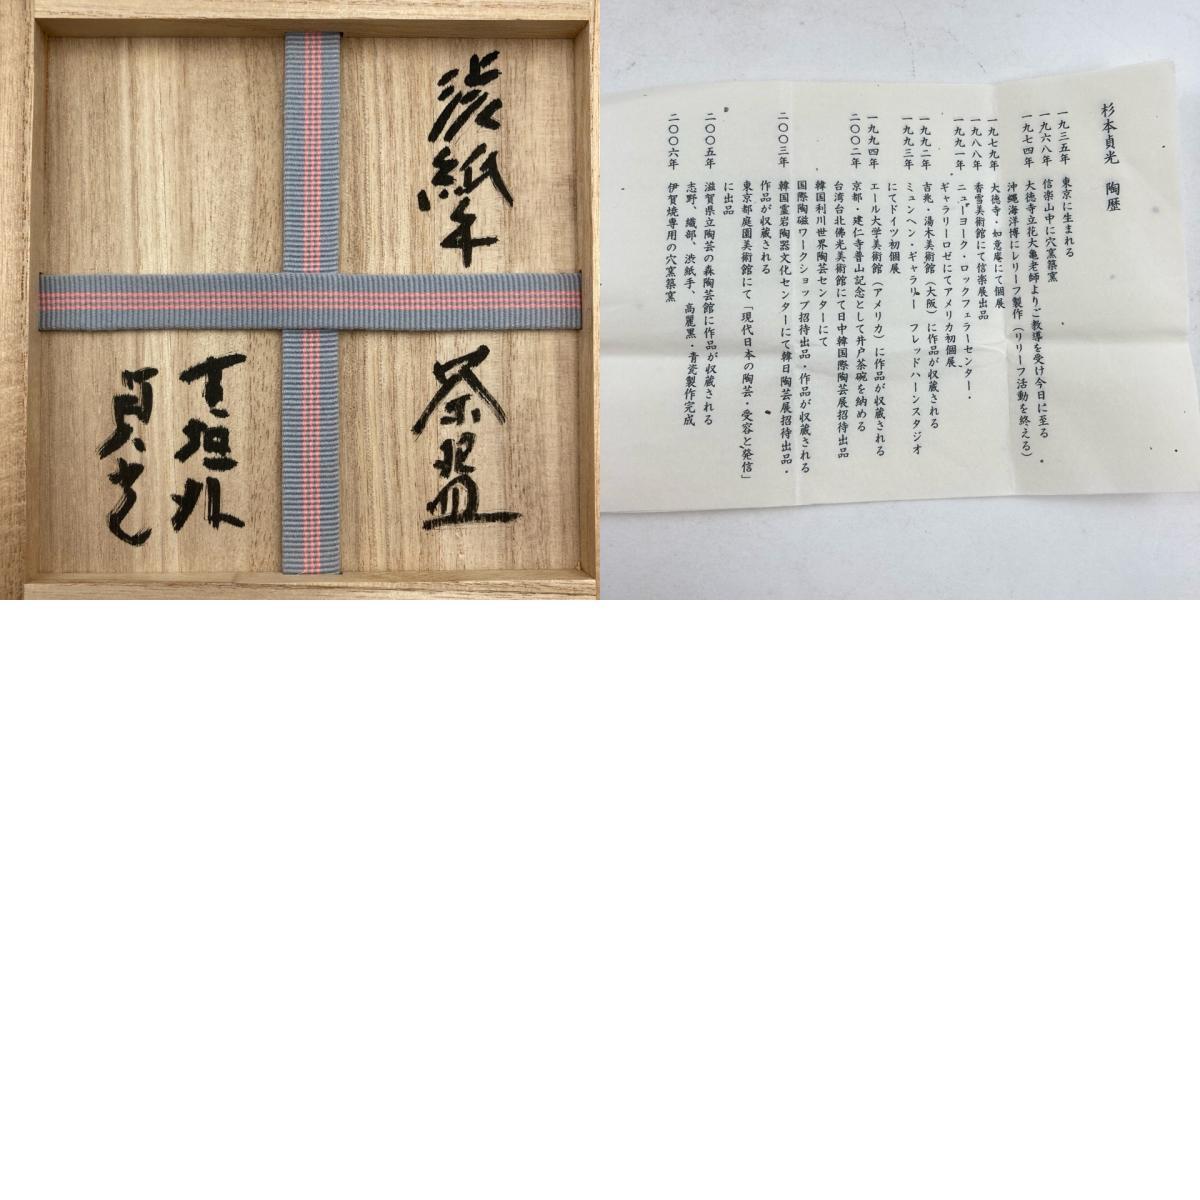 渋紙手
茶盌
寸垣外
貞光
杉本貞光 陶歴
一九三五年 東京に生まれる
一九六八年 信楽山中に穴窯築窯
一九七四年 大徳寺立花大亀老師よりご教導を受け今日に至る
沖縄海洋博にレリーフ製作(リリーフ活動を終える)
一九七九年 大徳寺・如意庵にて個展
一九八八年 香雪美術館にて信楽展出品
一九九一年 ニューヨーク・ロックフェラーセンター・
ギャラリーロゼにてアメリカ初個展
一九九二年 吉兆・湯木美術館(大阪)に作品が収蔵される
一九九三年 ミュンヘン・ギャラリー フレッドハーンスタジオ
にてドイツ初個展
一九九四年 エール大学美術館(アメリカ)に作品が収蔵される
二〇〇二年 京都・建仁寺晋山記念として井戸茶碗を納める
台湾台北佛光美術館にて日中韓国際陶芸展招待出品
韓国利川世界陶芸センターにて
国際陶磁ワークショップ招待出品・作品が収蔵される
二〇〇三年 韓国霊岩陶器文化センターにて韓日陶芸展招待出品・
作品が収蔵される
東京都庭園美術館にて「現代日本の陶芸・受容と発信」
に出品
二〇〇五年 滋賀県立陶芸の森陶芸館に作品が収蔵される
志野、織部、渋紙手、高麗黒・青瓷製作完成
二〇〇六年 伊賀焼専用の穴窯築窯